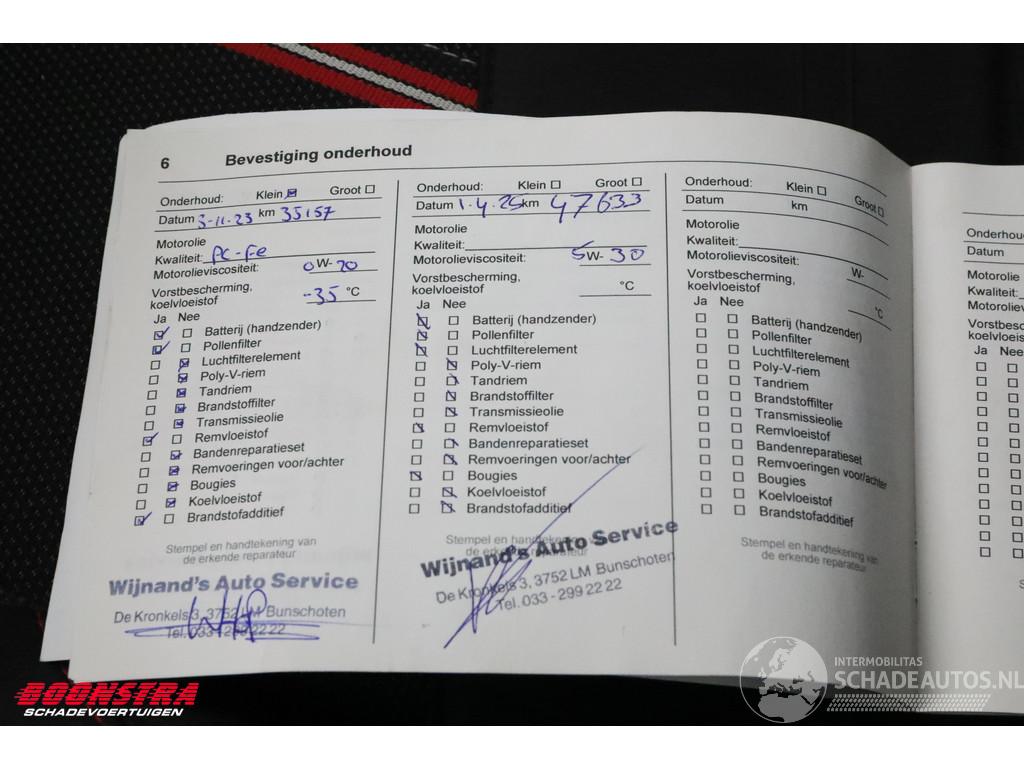 6 Bevestiging onderhoud
Onderhoud: Klein Groot
Datum 3-11-23 km 35157
Motorolie
Kwaliteit:
Motorolieviscositeit: 0W-20
Vorstbescherming,
koelvloeistof -35 °C
Ja Nee
Batterij (handzender)
Pollenfilter
Luchtfilterelement
Poly-V-riem
Tandriem
Brandstoffilter
Transmissieolie
Remvloeistof
Bandenreparatieset
Remvoeringen voor/achter
Bougies
Koelvloeistof
Brandstofadditief
Stempel en handtekening van
de erkende reparateur
Wijnand's Auto Service
De Kronkels 3, 3752 LM Bunschoten
Tel. 033-299 22 22
Onderhoud: Klein Groot
Datum 1.4.25 km 47633
Motorolie
Kwaliteit:
Motorolieviscositeit: 5W-30
Vorstbescherming,
koelvloeistof °C
Ja Nee
Batterij (handzender)
Pollenfilter
Luchtfilterelement
Poly-V-riem
Tandriem
Brandstoffilter
Transmissieolie
Remvloeistof
Bandenreparatieset
Remvoeringen voor/achter
Bougies
Koelvloeistof
Brandstofadditief
Stempel en handtekening van
de erkende reparateur
Wijnand's Auto Service
De Kronkels 3, 3752 LM Bunschoten
Tel. 033-299 22 22
Onderhoud: Klein Groot
Datum km
Motorolie
Kwaliteit:
Motorolieviscositeit: W-
Vorstbescherming,
koelvloeistof °C
Ja Nee
Batterij (handzender)
Pollenfilter
Luchtfilterelement
Poly-V-riem
Tandriem
Brandstoffilter
Transmissieolie
Remvloeistof
Bandenreparatieset
Remvoeringen voor/achter
Bougies
Koelvloeistof
Brandstofadditief
Stempel en handtekening van
de erkende reparateur
Onderhou
Datum
Motorolie
Kwaliteit:
Motorolievi
Vorstbesc
koelvloeis
Ja Nee
BOONSTRA
SCHADEVOERTUIGEN
INTERMOBILITAS
SCHADEAUTOS.NL